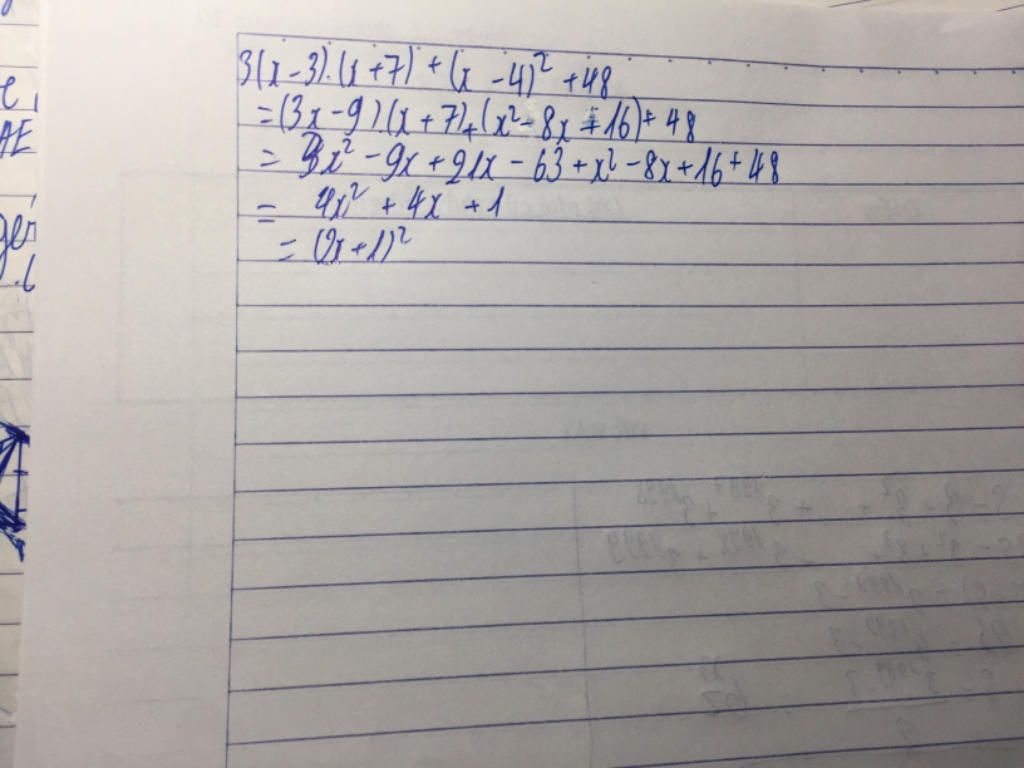 3(x-3).(x+7)+(x-4)²+48
=(3x-9)(x+7)+(x²-8x+16)+48
= 3x²-9x+21x-63+x²-8x+16+48
= 4x²+4x+1
= (2x+1)²